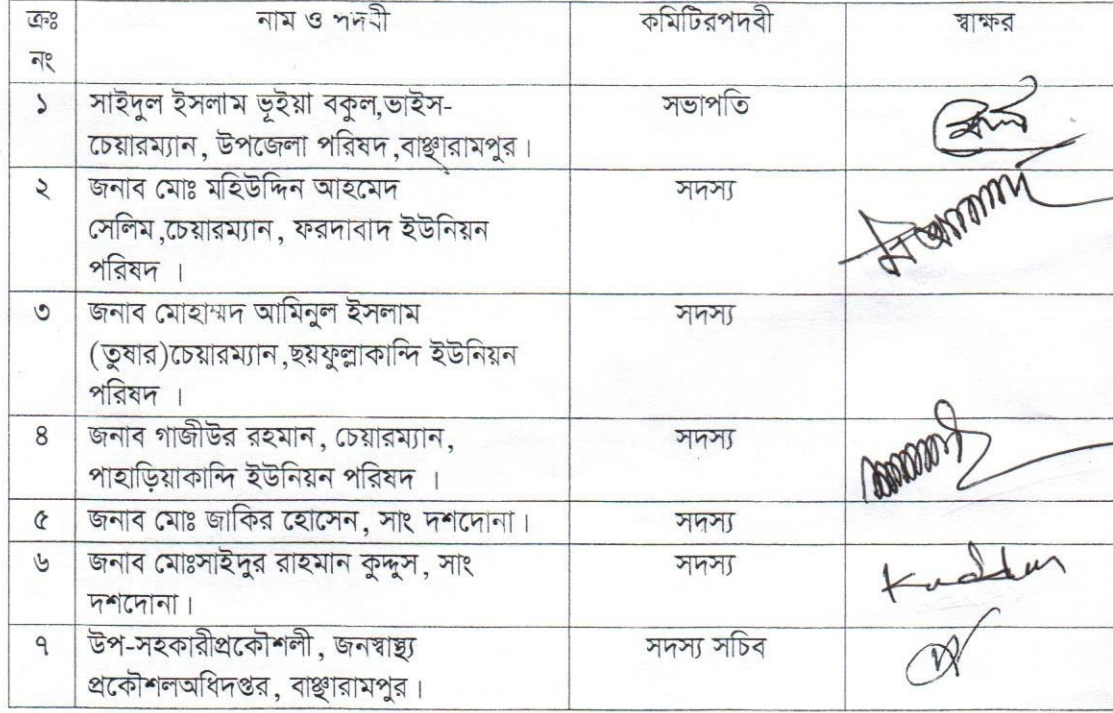 ক্রঃ নাম ও পদবী কমিটিরপদবী স্বাক্ষর
নং
১ সাইদুল ইসলাম ভূইয়া বকুল,ভাইস- সভাপতি
চেয়ারম্যান, উপজেলা পরিষদ,বাঞ্ছারামপুর।
২ জনাব মোঃ মহিউদ্দিন আহমেদ সদস্য
সেলিম,চেয়ারম্যান, ফরদাবাদ ইউনিয়ন
পরিষদ ।
৩ জনাব মোহাম্মদ আমিনুল ইসলাম সদস্য
(তুষার)চেয়ারম্যান,ছয়ফুল্লাকান্দি ইউনিয়ন
পরিষদ ।
৪ জনাব গাজীউর রহমান, চেয়ারম্যান, সদস্য
পাহাড়িয়াকান্দি ইউনিয়ন পরিষদ ।
৫ জনাব মোঃ জাকির হোসেন, সাং দশদোনা। সদস্য
৬ জনাব মোঃসাইদুর রাহমান কুদ্দুস, সাং সদস্য Kuddus
দশদোনা।
৭ উপ-সহকারীপ্রকৌশলী, জনস্বাস্থ্য সদস্য সচিব
প্রকৌশলঅধিদপ্তর, বাঞ্ছারামপুর।